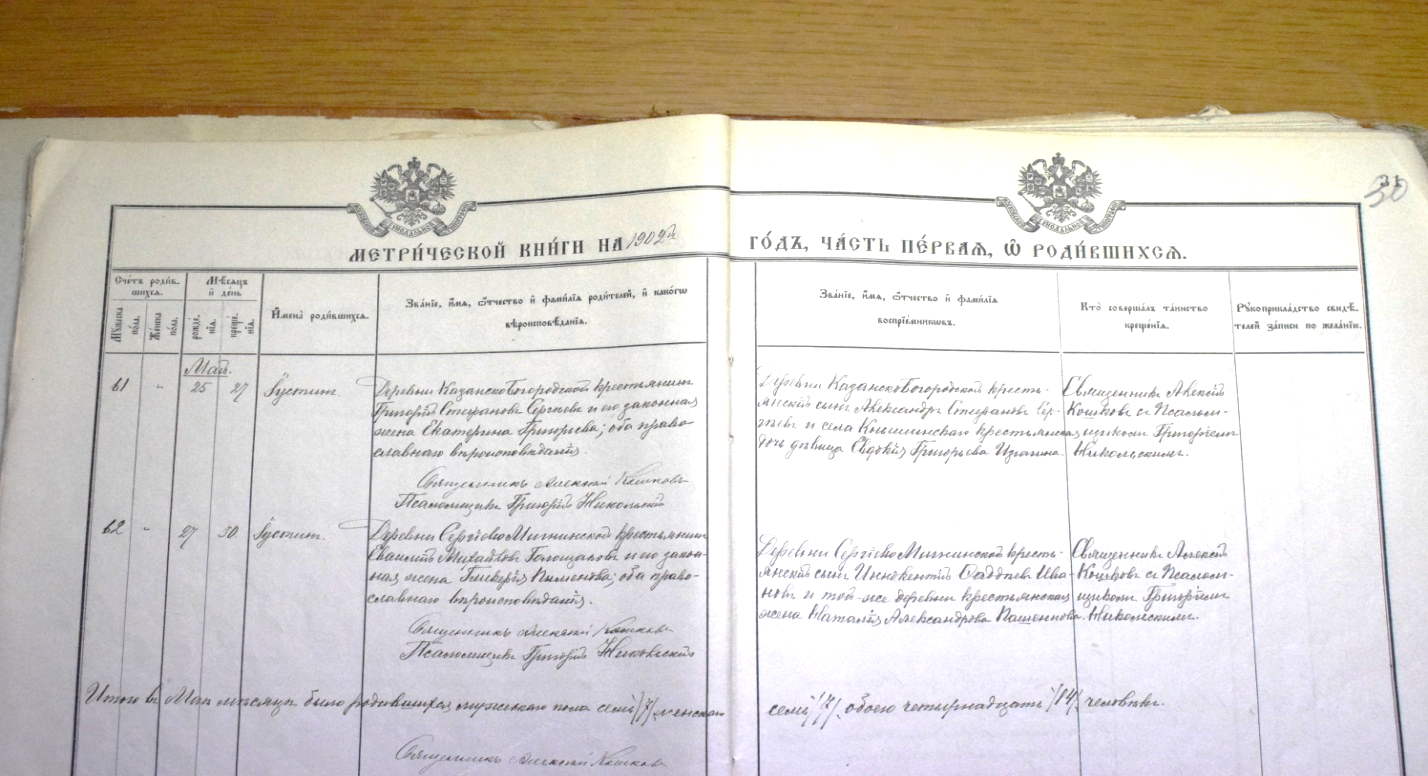 31
30
МЕТРИ́ЧЕСКОЙ КНИ́ГИ НА 1902й ГО́ДЪ, ЧА́СТЬ ПЕ́РВАЯ, Ѡ РОДИ́ВШИХСЯ.
Сче́тъ роди́в-
шихся.
Му́жеска
по́ла.
Же́нска
по́ла.
Мѣ́сяцъ
и҆ де́нь
рожде́-
нїѧ.
креще́-
нїѧ.
И҆мена̀ роди́вшихся.
Зва́нїе, и҆́мя, ѻ҆́тчество и҆ фами́лїя роди́телей, и҆ како́гѡ
вѣроисповѣ́данїя.
Зва́нїе, и҆́мя, ѻ҆́тчество и҆ фами́лїя
воспрїе́мниковъ.
Кто̀ соверша́лъ та́инство
креще́нїя.
Рꙋкоприкла́дство свидѣ́-
телей за́писи по жела́нїю.
Май.
61 " 25 27 Iустинъ.
Деревни КазанскоБогородской крестьянинъ
Григорiй Стефановъ Сергѣевъ и его законная
жена Екатерина Григорьева; оба право-
славнаго вѣроисповѣданiя.
Священникъ Алексiй Кошковъ
Псаломщикъ Григорiй Никольскiй
Деревни КазанскоБогородской кресть-
янскiй сынъ Александръ Стефановъ Сер-
гѣевъ и села крестьянская
дочь дѣвица Евдокiя Григорьева
Священникъ Алексiй
Кошковъ съ Псалом-
щикомъ Григорiемъ
Никольскимъ.
62 " 27 30. Iустинъ.
Деревни СергiевоМишинской крестьянинъ
Евсѣвiй Михайловъ и его закон-
ная жена Гликерiя Пименова; оба право-
славнаго вѣроисповѣданiя.
Священникъ Алексiй Кошковъ
Псаломщикъ Григорiй Никольскiй
Деревни СергiевоМишинской кресть-
янскiй сынъ Иннокентiй Ива-
новъ и той-же деревни крестьянская
жена Наталiя Александрова Пашеннова.
Священникъ Алексiй
Кошковъ съ Псалом-
щикомъ Григорiемъ
Никольскимъ.
Итого въ Маѣ мѣсяцѣ было родившихся мужескаго пола семь /7/, женскаго
семь /7/, обоего четырнадцать /14/ человѣкъ.
Священникъ Алексiй Кошковъ